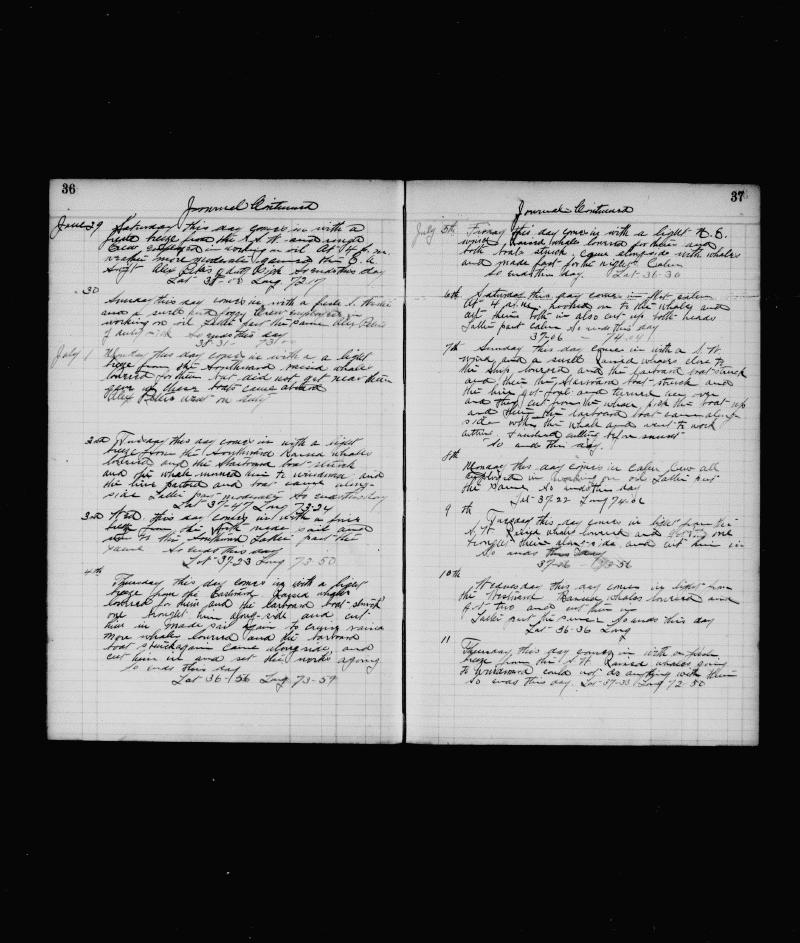 36
Journal Continued
June 29 Saturday this day comes in with a
fresh breeze from the S.W. and
Crew employed in working on oil At 4 p.m.
more moderate
Alex duty So ends this day
Lat 38-08 Long 72-17
30
Sunday this day comes in with a fresh S.
and a swell and foggy Crew employed in
working on oil Latter part the same
of duty So ends this day
38-31 73
July 1 Monday this day comes in with a light
breeze from the Southward raised whales
lowered for them but did not get near them
gave up chase boats came aboard
Alex went on duty
Tuesday this day comes in with a light
breeze from the Southward Raised whales
lowered and the Starboard boat struck
and the whale to windward and
the line parted and boat came along-
side Latter part moderate So ends this day
Lat 37-47 Long 73-24
3rd Wed. this day comes in with a fine
breeze from the made sail and
to the Southward Latter part the
same So ends this day
Lat 37-23 Long 73-50
4th
Thursday this day comes in with a light
breeze from the Eastward Raised whales
lowered for them and the larboard boat struck
one brought him along-side and cut
him in made sail again to raised
more whales lowered and the larboard
boat struck again came alongside, and
cut him in and set the works agoing
So ends this day
Lat 36-56 Long 73-59
37
Journal Continued
July 5th Friday this day comes in with a light N.E.
wind, Raised whales lowered for them and
both boats struck, came alongside with whales
and made fast for the night Calm
So ends this day. Lat-36-30
6th Saturday this day comes in calm
At 4 a.m. hooked on to the whales and
cut them both in also cut up both heads
Latter part Calm So ends this day
37-06 74
7th Sunday this day comes in with a S.W.
wind, and a swell Raised whales close to
the ship lowered and the larboard boat struck
and then the Starboard boat struck and
the line got foul and turned over
and they cut from the whale, pick the boat up
and then the larboard boat came along
side with the whale and went to work
cutting & finished cutting before sunset
So ends this day.
8th
Monday this day comes in Calm Crew all
employed in working on oil Latter part
the Same So ends this day
Lat-37-22 Long 74-02
9th
Tuesday this day comes in light from the
S.W. Raised whales lowered and got one
brought them along-side and cut him in
So ends this day
37-26 73-56
10th
Wednesday this day comes in light from
the Westward Raised whales lowered and
got two and cut them in
Latter part the same So ends this day
Lat-36-36 Long
11
Thursday, this day comes in with a fresh
breeze from the S.W. Raised whales going
to windward could not do anything with them
So ends this day. Lat-37-33 Long 72-50